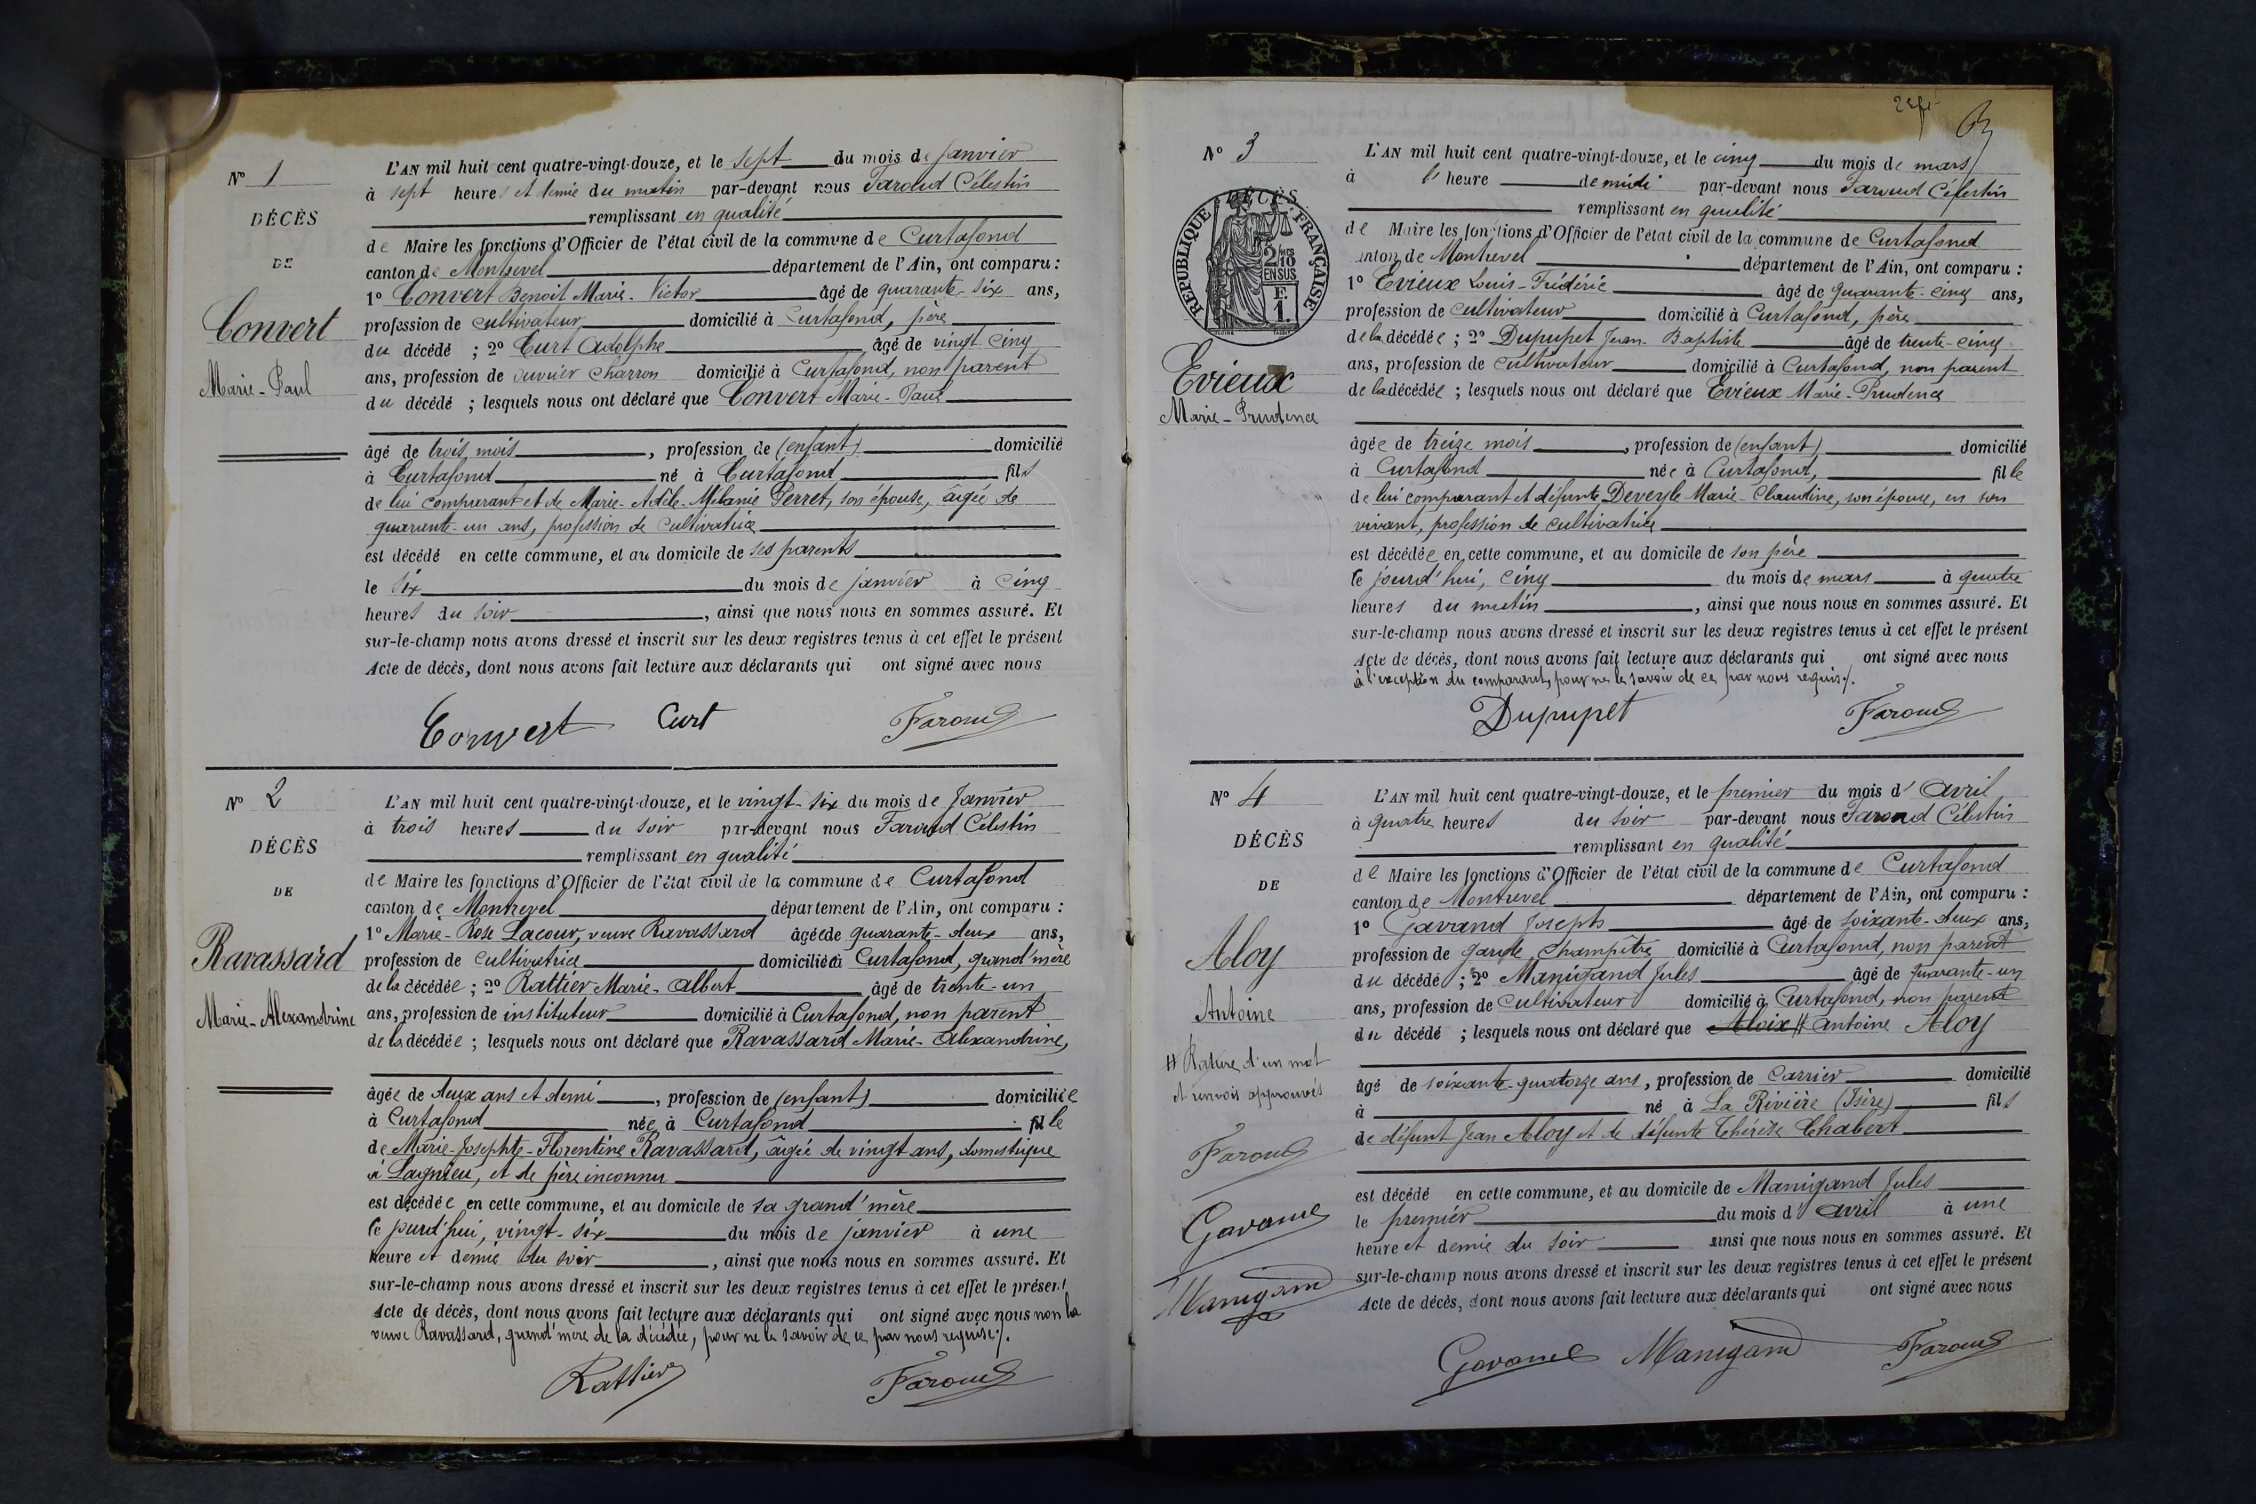 N° 1
DÉCÈS
DE
Convert
Marie-Paul
L'AN mil huit cent quatre-vingt-douze, et le sept du mois de janvier
à sept heures et demie du matin par-devant nous Faroud Célestin
remplissant en qualité
de Maire les fonctions d'Officier de l'état civil de la commune de Curtafond
canton de Montrevel département de l'Ain, ont comparu :
1° Convert Benoît Marie-Victor âgé de quarante-six ans,
profession de cultivateur domicilié à Curtafond, père
du décédé ; 2° Curt Adolphe âgé de vingt-cinq
ans, profession de ouvrier charron domicilié à Curtafond, non parent
du décédé ; lesquels nous ont déclaré que Convert Marie-Paul
âgé de trois mois, profession de (enfant) domicilié
à Curtafond né à Curtafond fils
de lui comparant et de Marie-Adèle-Mélanie Perret, son épouse, âgée de
quarante-un ans, profession de cultivatrice
est décédé en cette commune, et au domicile de ses parents
le six du mois de janvier à cinq
heures du soir, ainsi que nous nous en sommes assuré. Et
sur-le-champ nous avons dressé et inscrit sur les deux registres tenus à cet effet le présent
Acte de décès, dont nous avons fait lecture aux déclarants qui ont signé avec nous
Convert Curt Faroud
N° 2
DÉCÈS
DE
Ravassard
Marie-Alexandrine
L'AN mil huit cent quatre-vingt-douze, et le vingt-six du mois de Janvier
à trois heures du soir par-devant nous Faroud Célestin
remplissant en qualité
de Maire les fonctions d'Officier de l'état civil de la commune de Curtafond
canton de Montrevel département de l'Ain, ont comparu :
1° Marie-Rose Lacour, veuve Ravassard âgée de quarante-deux ans,
profession de cultivatrice domiciliée à Curtafond, grand'mère
de la décédée ; 2° Rattier Marie-Albert âgé de trente-un
ans, profession de instituteur domicilié à Curtafond, non parent
de la décédée ; lesquels nous ont déclaré que Ravassard Marie-Alexandrine,
âgée de deux ans et demi, profession de (enfant) domiciliée
à Curtafond née à Curtafond fille
de Marie-Josephte-Florentine Ravassard, âgée de vingt ans, domestique
à Lagnieu, et de père inconnu
est décédée en cette commune, et au domicile de sa grand'mère
le jourd'hui, vingt-six du mois de janvier à une
heure et demie du soir, ainsi que nous nous en sommes assuré. Et
sur-le-champ nous avons dressé et inscrit sur les deux registres tenus à cet effet le présent
Acte de décès, dont nous avons fait lecture aux déclarants qui ont signé avec nous non la
veuve Ravassard, grand'mère de la décédée, pour ne le savoir de ce par nous requise ./.
Rattier Faroud
N° 3
DÉCÈS
RÉPUBLIQUE FRANÇAISE
2/10 EN SUS
F. 1.
Evieux
Marie-Prudence
L'AN mil huit cent quatre-vingt-douze, et le cinq du mois de mars
à heure de midi par-devant nous Faroud Célestin
remplissant en qualité
de Maire les fonctions d'Officier de l'état civil de la commune de Curtafond
canton de Montrevel département de l'Ain, ont comparu :
1° Evieux Louis-Frédéric âgé de quarante-cinq ans,
profession de cultivateur domicilié à Curtafond, père
de la décédée ; 2° Dupupet Jean-Baptiste âgé de trente-cinq
ans, profession de cultivateur domicilié à Curtafond, non parent
de la décédée ; lesquels nous ont déclaré que Evieux Marie-Prudence
âgée de treize mois, profession de (enfant) domicilié
à Curtafond née à Curtafond, fille
de lui comparant et défunte Deveyle Marie-Claudine, son épouse, en son
vivant, profession de cultivatrice
est décédée en cette commune, et au domicile de son père
le jourd'hui, cinq du mois de mars à quatre
heures du matin, ainsi que nous nous en sommes assuré. Et
sur-le-champ nous avons dressé et inscrit sur les deux registres tenus à cet effet le présent
Acte de décès, dont nous avons fait lecture aux déclarants qui ont signé avec nous
à l'exception du comparant, pour ne le savoir de ce par nous requis ./.
Dupupet Faroud
N° 4
DÉCÈS
DE
Aloy
Antoine
# Rature d'un mot
et renvois approuvés
Faroud
Gavand
Manigand
L'AN mil huit cent quatre-vingt-douze, et le premier du mois d'avril
à quatre heures du soir par-devant nous Faroud Célestin
remplissant en qualité
de Maire les fonctions d'Officier de l'état civil de la commune de Curtafond
canton de Montrevel département de l'Ain, ont comparu :
1° Gavand Joseph âgé de soixante-deux ans,
profession de garde champêtre domicilié à Curtafond, non parent
du décédé ; 2° Manigand Jules âgé de quarante-un
ans, profession de cultivateur domicilié à Curtafond, non parent
du décédé ; lesquels nous ont déclaré que Aloix # Antoine Aloy
âgé de soixante-quatorze ans, profession de carrier domicilié
à né à La Rivière (Isère) fils
de défunt Jean Aloy et de défunte Thérèse Chabert
est décédé en cette commune, et au domicile de Manigand Jules
le premier du mois d'avril à une
heure et demie du soir ainsi que nous nous en sommes assuré. Et
sur-le-champ nous avons dressé et inscrit sur les deux registres tenus à cet effet le présent
Acte de décès, dont nous avons fait lecture aux déclarants qui ont signé avec nous
Gavand Manigand Faroud